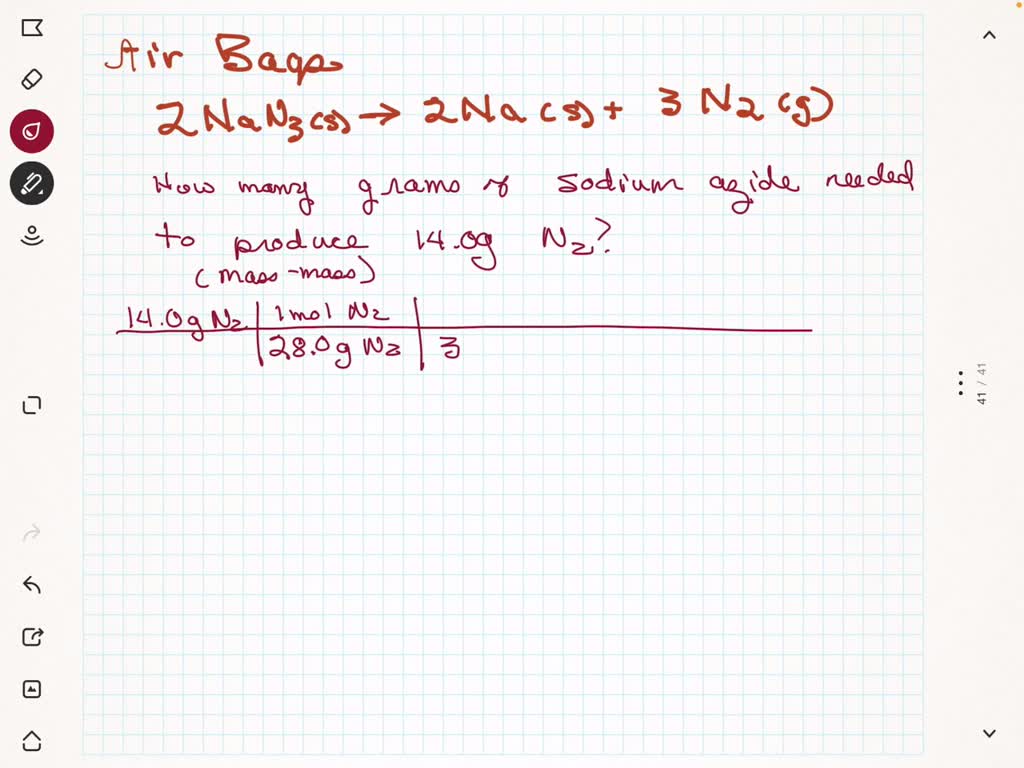 Air Bags
2NaN3(s) → 2Na (s) + 3 N2 (g)
How many grams of sodium azide needed
to produce 14.0g N2?
(mass-mass)
14.0g N2 | 1mol N2 |
28.0g N2 | 3
41 / 41